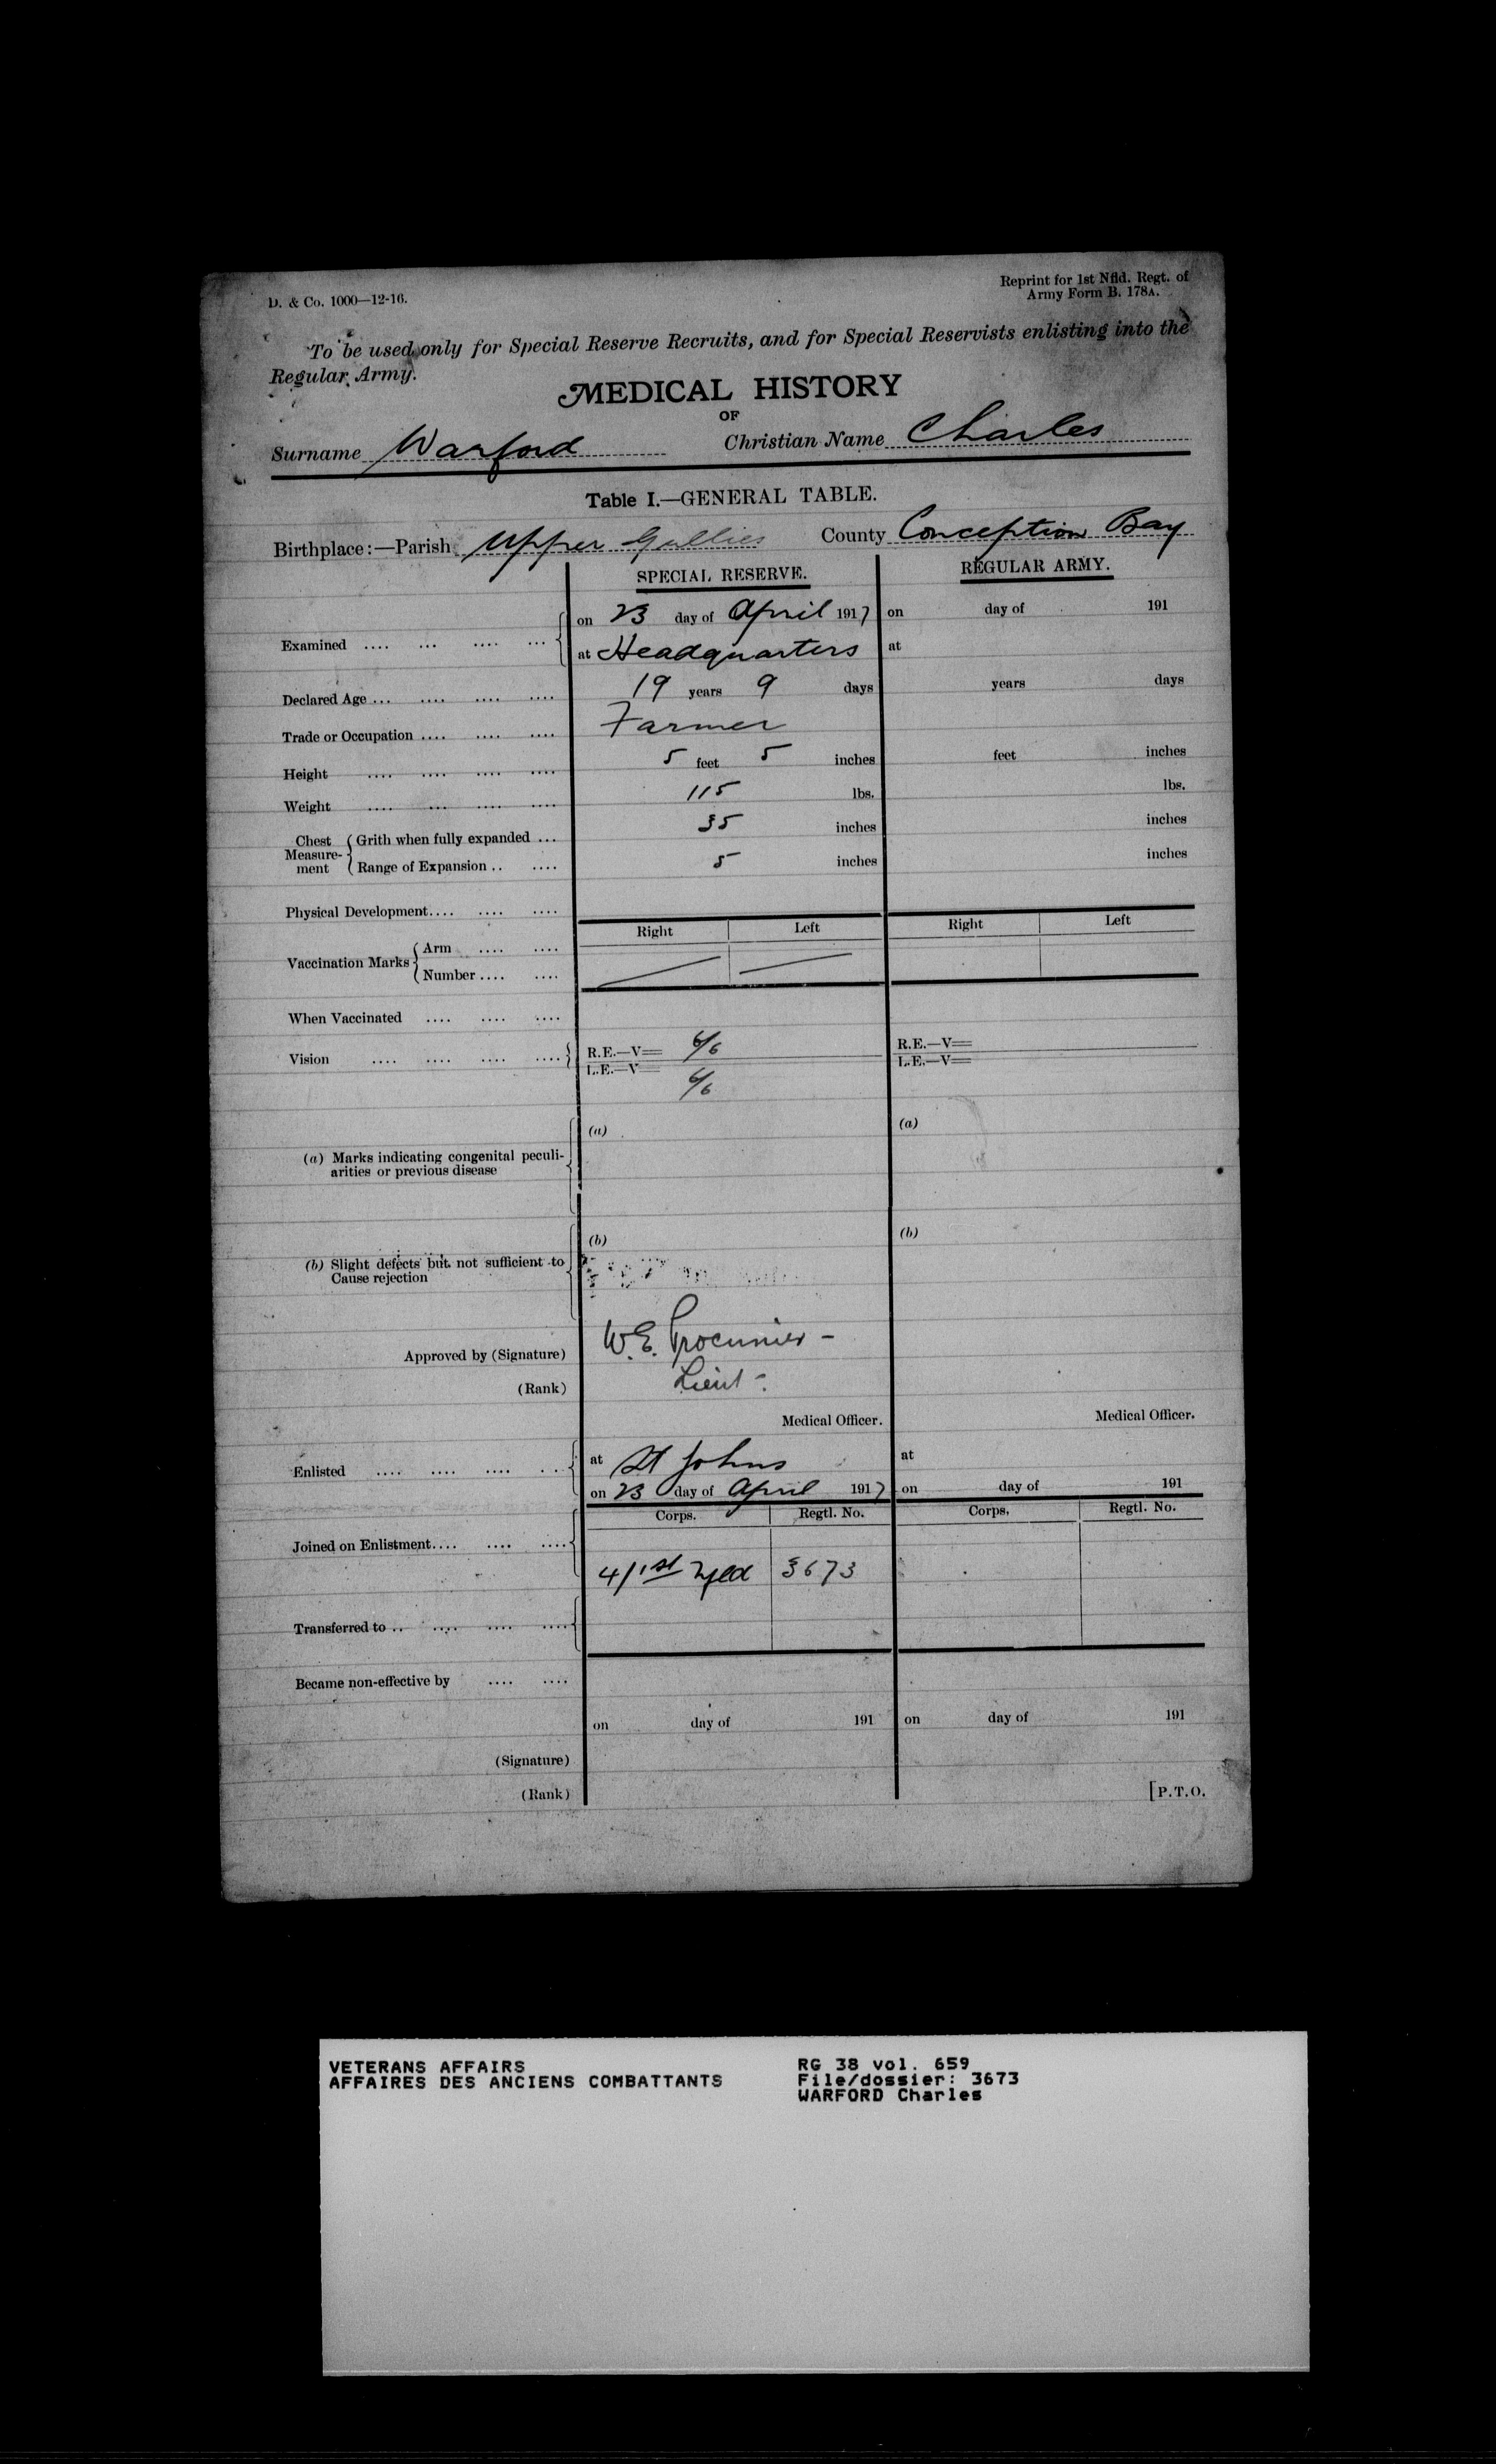 D. & Co. 1000—12-16.
Reprint for 1st Nfld. Regt. of
Army Form B. 178A.
To be used only for Special Reserve Recruits, and for Special Reservists enlisting into the
Regular Army.
MEDICAL HISTORY
OF
Surname Warford Christian Name Charles
Table I.—GENERAL TABLE.
Birthplace:—Parish Upper Gullies County Conception Bay
SPECIAL RESERVE. REGULAR ARMY.
on 23 day of April 1917 on day of 191
Examined .... ... .... ...
at Headquarters at
Declared Age ... .... .... .... 19 years 9 days years days
Trade or Occupation .... .... .... Farmer
Height .... .... .... .... 5 feet 5 inches feet inches
Weight .... ... .... .... 115 lbs. lbs.
Chest Measurement Grith when fully expanded ... 35 inches inches
Range of Expansion .. .... 5 inches inches
Physical Development.... .... ....
Right Left Right Left
Vaccination Marks Arm .... ....
Number .... ....
When Vaccinated .... .... ....
Vision .... .... .... .... R.E.—V= 6/6 R.E.—V=
L.E.—V= 6/6 L.E.—V=
(a) (a)
(a) Marks indicating congenital peculi-
arities or previous disease
(b) (b)
(b) Slight defects but not sufficient to
Cause rejection
Approved by (Signature) W.E. Procunier -
(Rank) Lieut -.
Medical Officer. Medical Officer.
Enlisted .... .... .... .. at St Johns at
on 23 day of April 1917 on day of 191
Corps. Regtl. No. Corps. Regtl. No.
Joined on Enlistment.... .... ....
4/1st Nfld 3673
Transferred to .. .... .... ....
Became non-effective by .... ....
on day of 191 on day of 191
(Signature)
(Rank)
[P.T.O.
VETERANS AFFAIRS
AFFAIRES DES ANCIENS COMBATTANTS
RG 38 vol. 659
File/dossier: 3673
WARFORD Charles